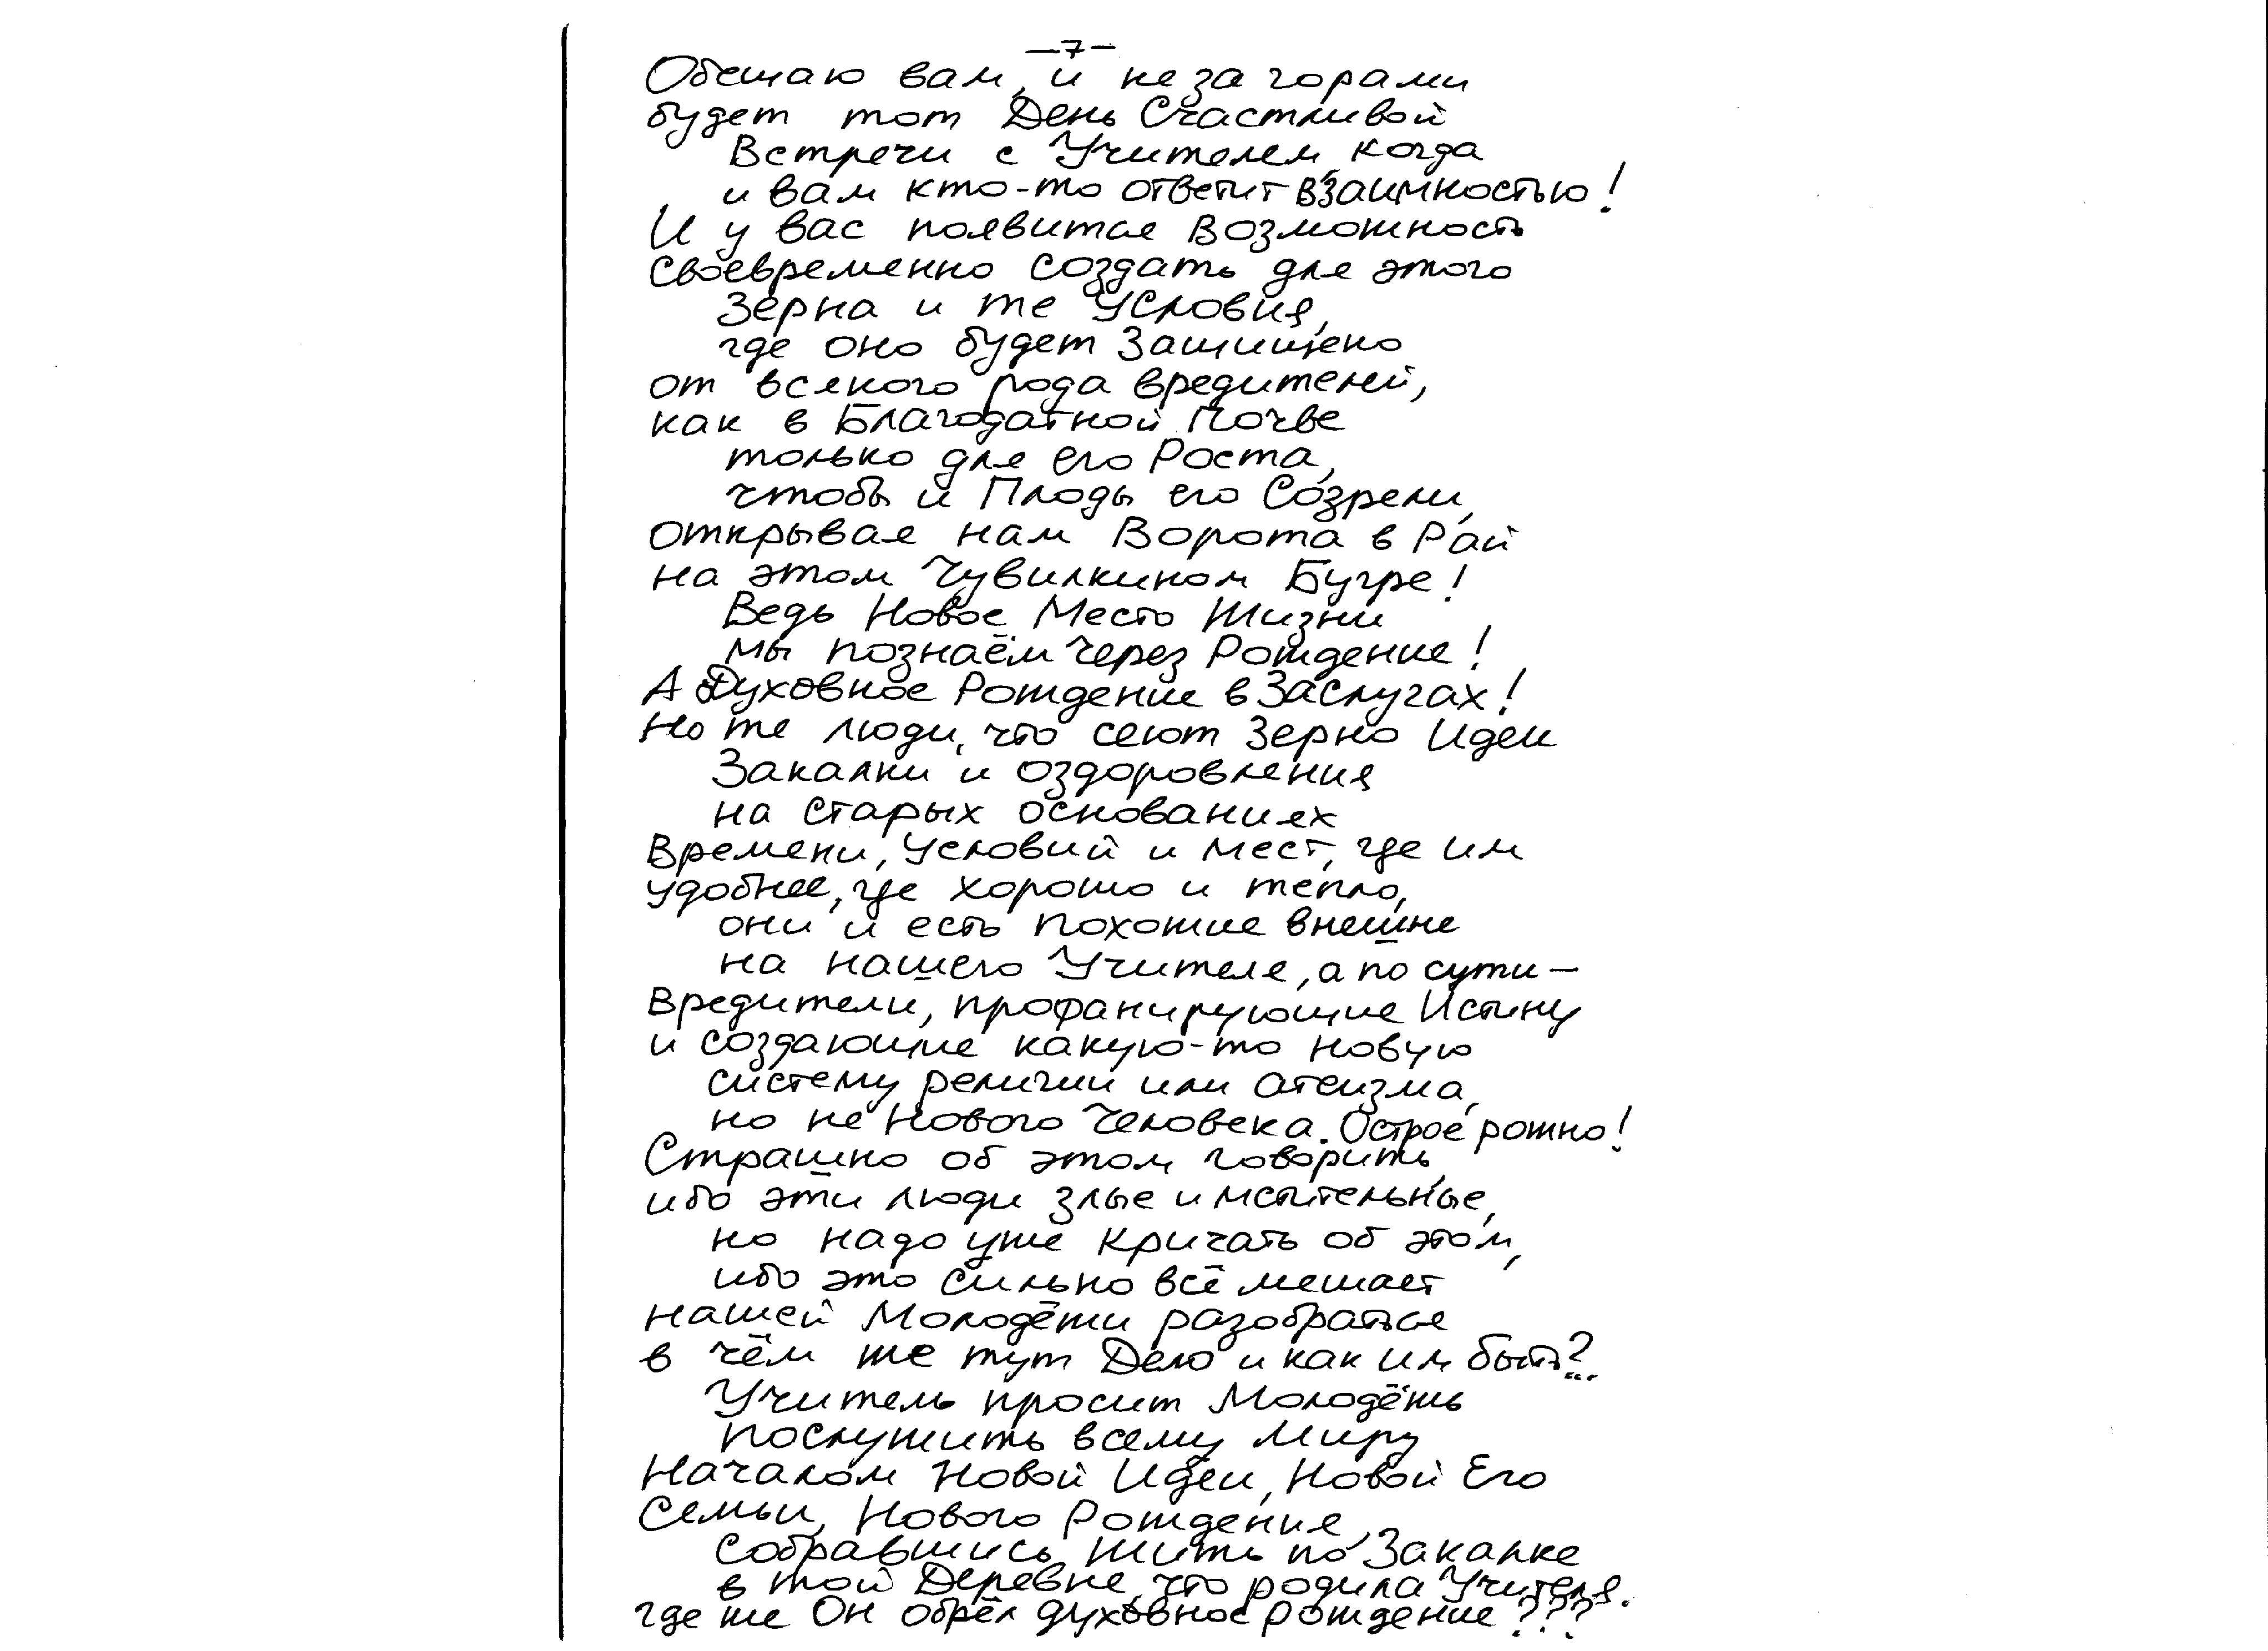 —7—
Обещаю вам, и не за горами
будет тот День Счастливой
Встречи с Учителем, когда
и вам кто-то ответит взаимностью!
И у вас появится Возможность
Своевременно создать для этого
Зерна и те Условия,
где оно будет Защищено
от всякого рода вредителей,
как в Благодатной Почве
только для его Роста,
чтобы и Плоды его Созрели,
открывая нам Ворота в Рай
на этом Чувилкином Бугре!
Ведь Новое Место Жизни
мы познаём через Рождение!
А Духовное Рождение в Заслугах!
Но те люди, что сеют Зерно Идеи
Закалки и оздоровления
на старых основаниях
Времени, Условий и мест, где им
удобнее, где хорошо и тепло,
они и есть похожие внешне
на нашего Учителя, а по сути —
Вредители, профанирующие Истину
и создающие какую-то новую
систему религии или атеизма,
но не Нового Человека. Осторожно!
Страшно об этом говорить,
ибо эти люди злые и мстительные,
но надо уже кричать об этом,
ибо это сильно всё мешает
нашей Молодёжи разобраться
в чём же тут Дело и как им быть?..
Учитель просит Молодёжь
послужить всему Миру
Началом Новой Идеи, Новой Его
Семьи, Нового Рождения,
собравшись жить по Закалке
в той Деревне, что родила Учителя.
где же Он обрёл духовное рождение???